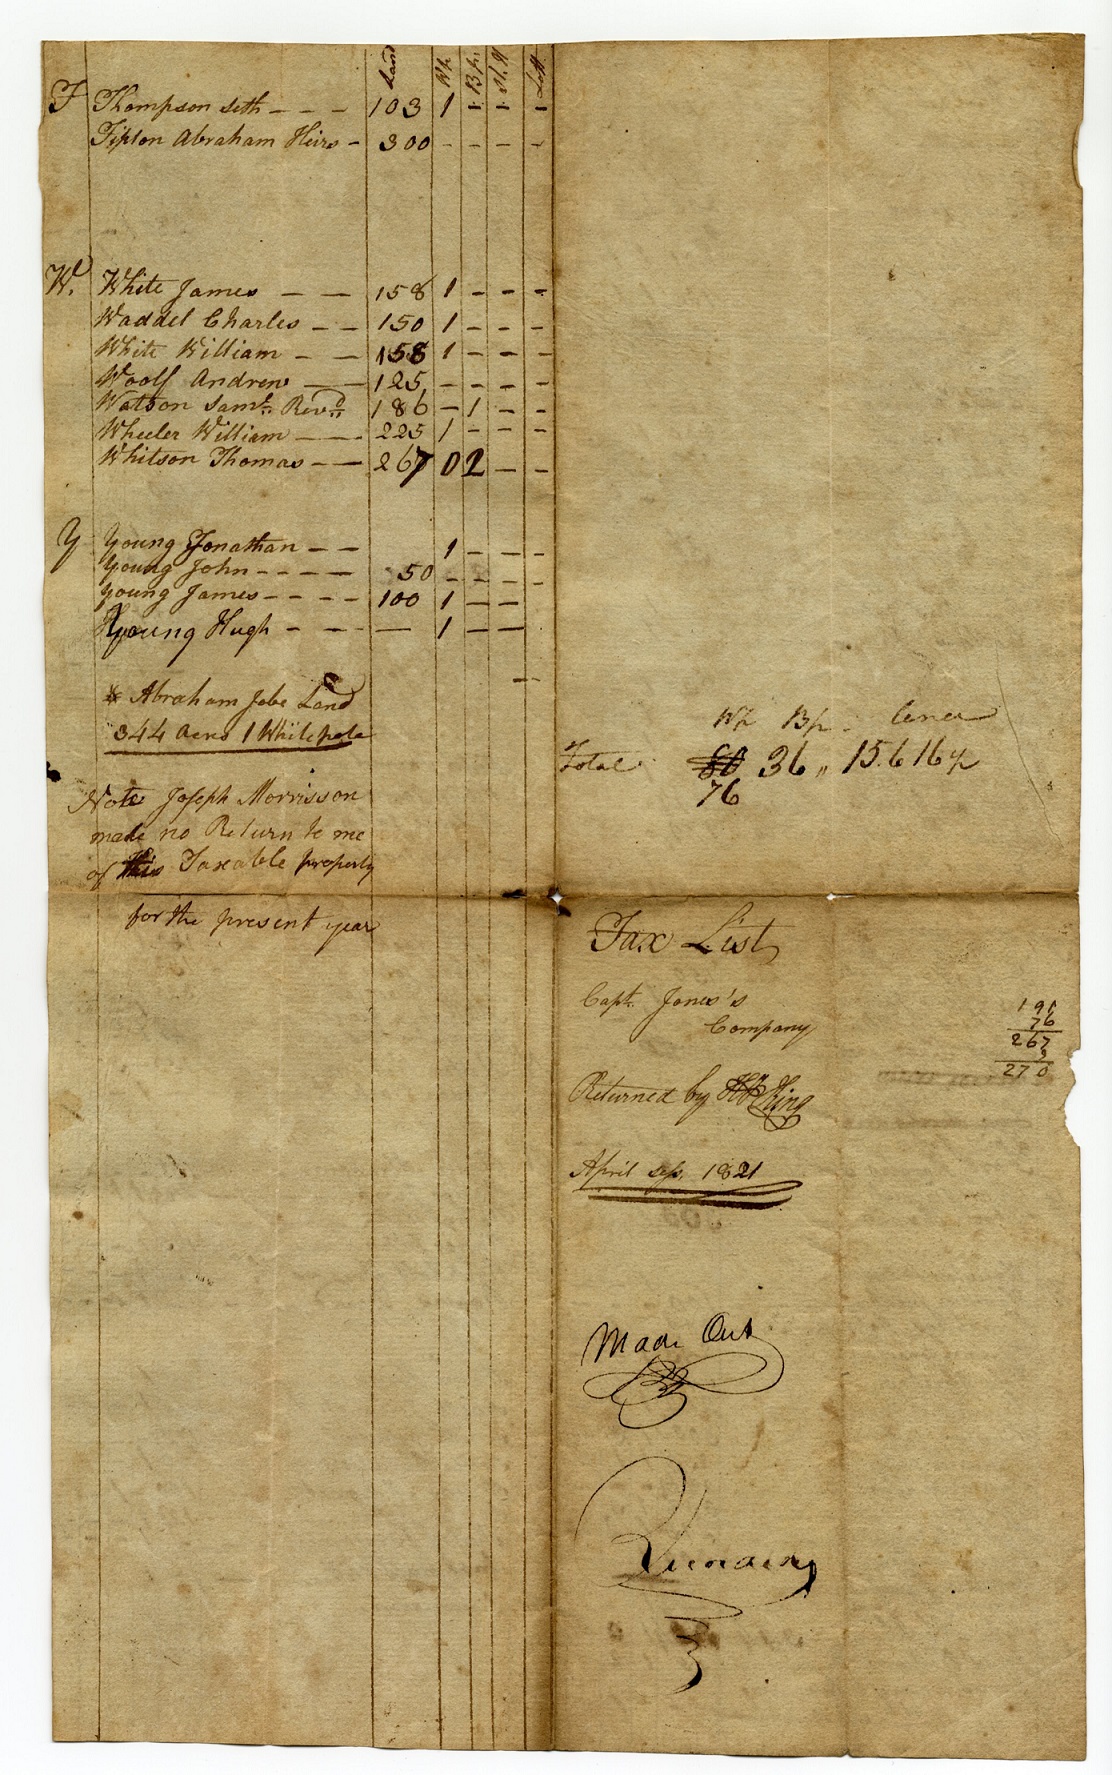 Land Wp. Bp. St. H Lott
T Thompson Seth - - - 103 1 - - -
Tipton Abraham Heirs - 300 - - - -
W. White James - - 158 1 - - -
Waddel Charles - - 150 1 - - -
White William - - 158 1 - - -
Woolf Andrew - 125 - - - -
Watson Saml. Revd. 186 - 1 - -
Wheeler William - - 225 1 - - -
Whitson Thomas - - 267 0 2 - -
Y Young Jonathan - - 1 - - -
Young John - - - - 50 - - - -
Young James - - - - 100 1 - -
Young Hugh - - - - 1 - -
* Abraham Jobe Land
344 acres 1 White pole
Note Joseph Morrisson
made no Return to me
of his Taxable property
for the present year
Wp Bp.
Total 80 36 " 15.616
76
Tax List
Capt. Jones's
Company
Returned by King
April ses. 1821
191
76
267
3
270
Made Out